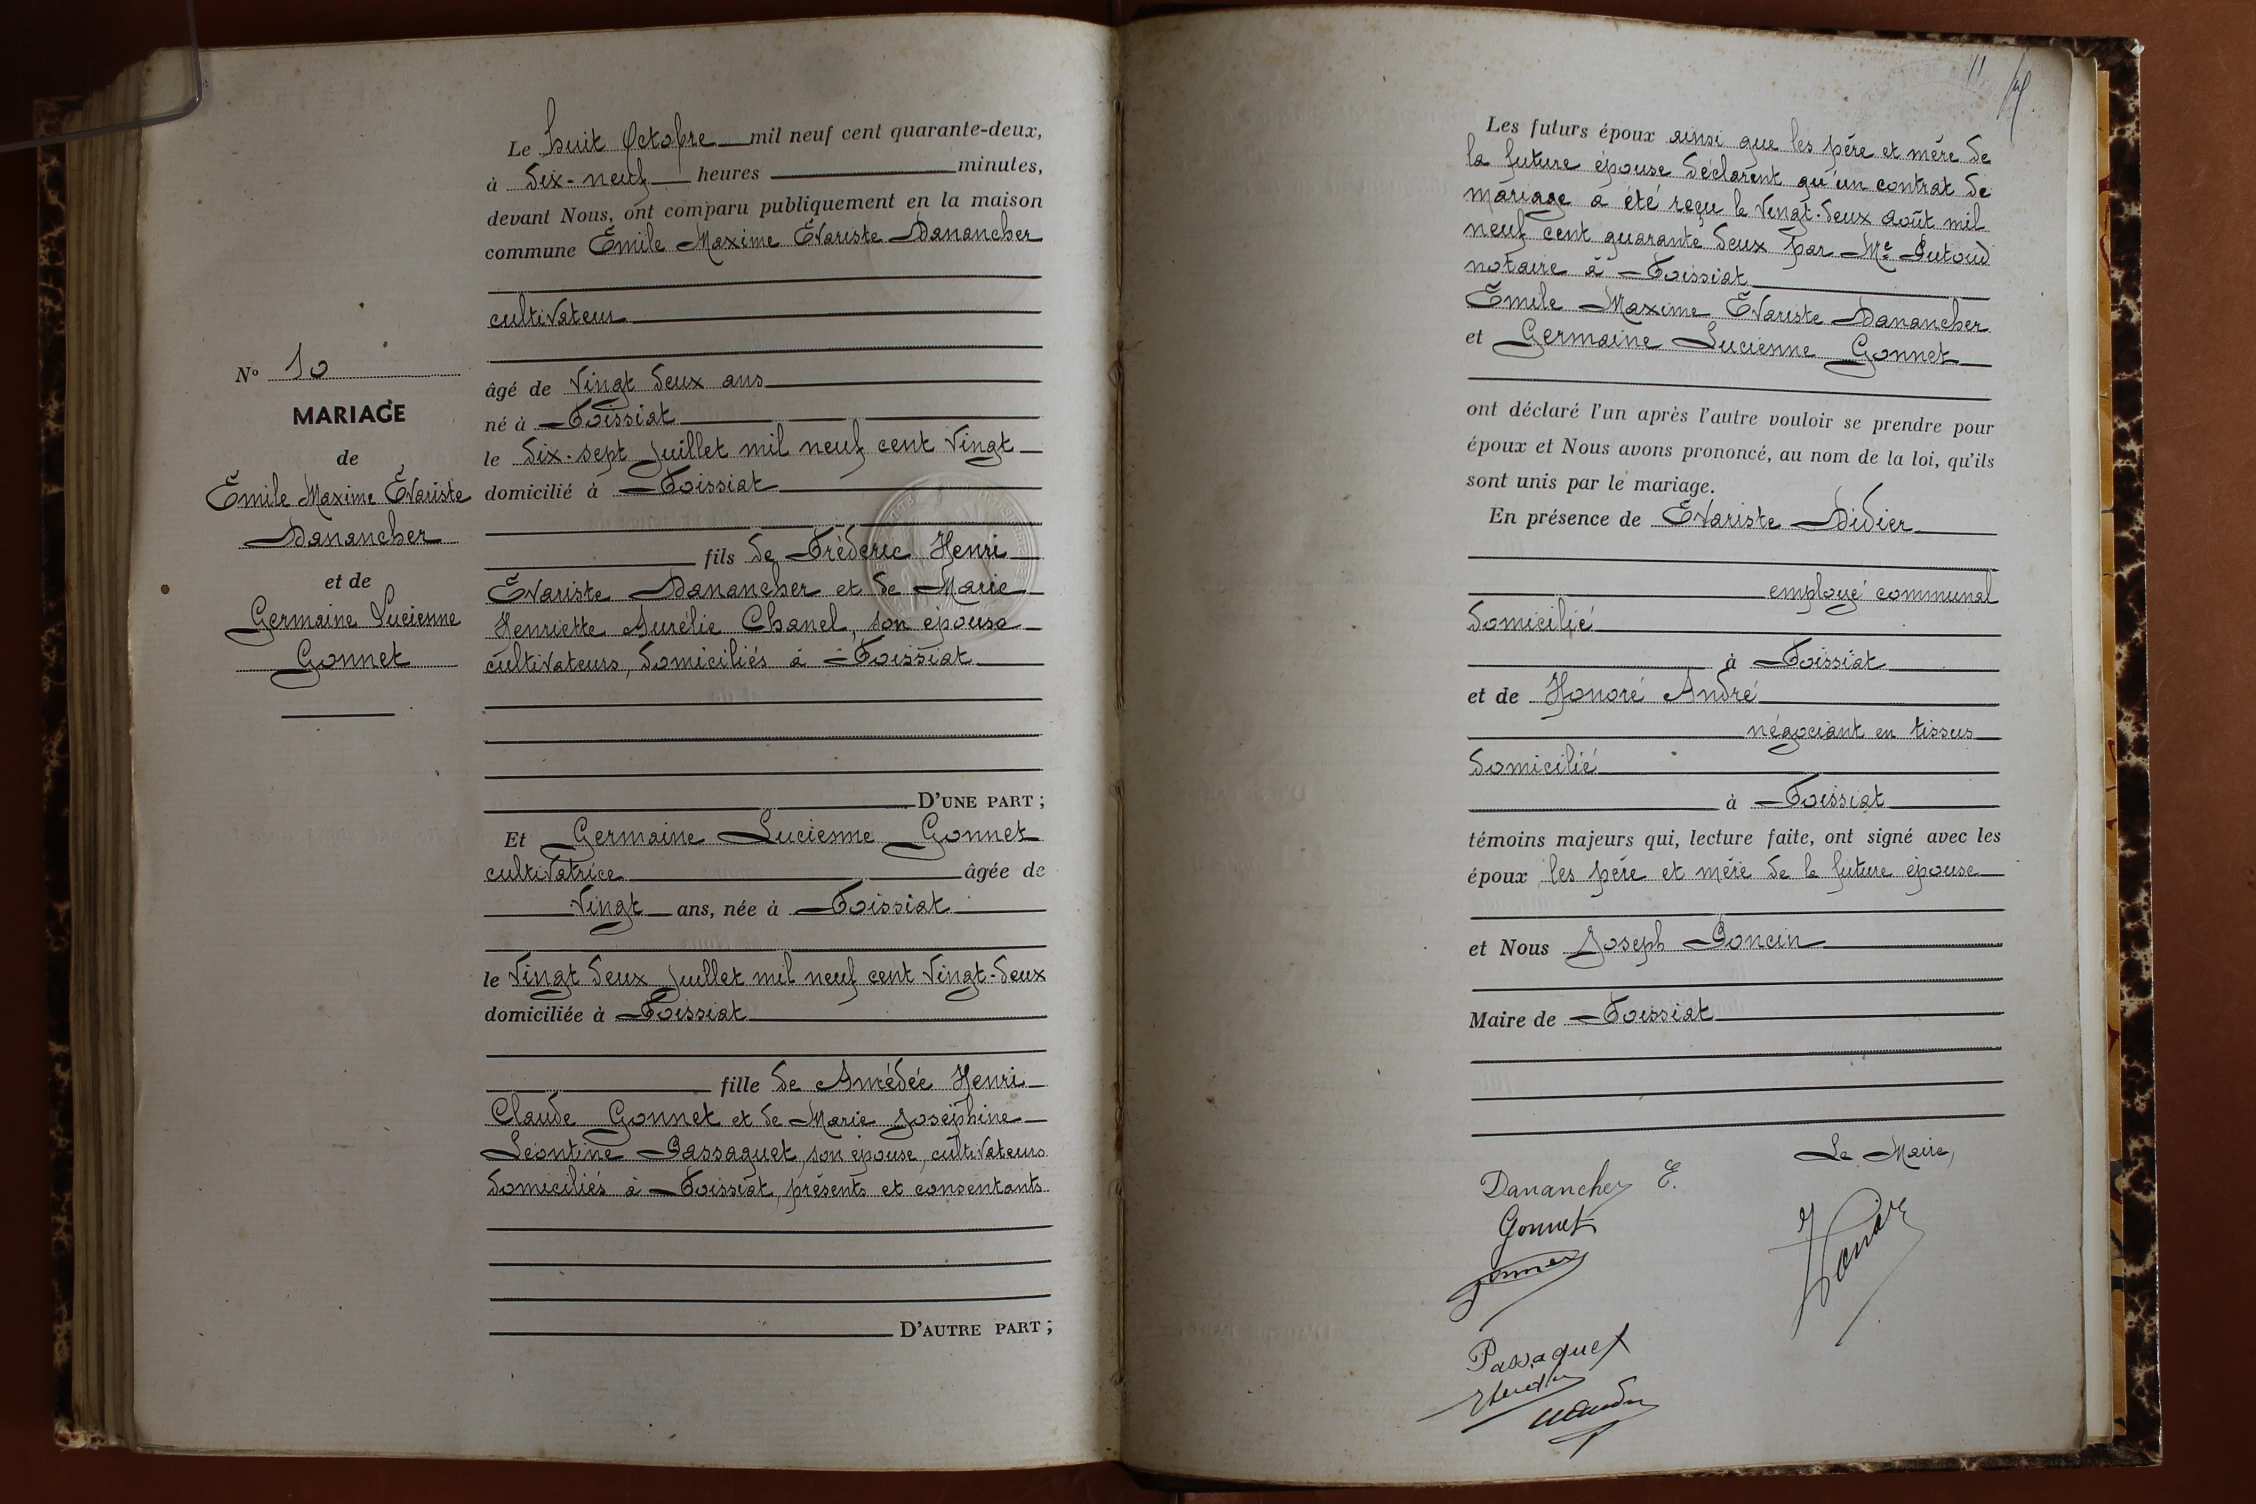 Le huit Octobre mil neuf cent quarante-deux,
à dix-neuf heures minutes,
devant Nous, ont comparu publiquement en la maison
commune Emile Maxime Evariste Danancher
cultivateur
âgé de vingt deux ans
né à Foissiat
le dix-sept juillet mil neuf cent vingt
domicilié à Foissiat
fils de Fréderic Henri
Evariste Danancher et de Marie
Henriette Aurélie Chanel, son épouse
cultivateurs, domiciliés à Foissiat
D'UNE PART ;
Et Germaine Lucienne Gonnet
cultivatrice âgée de
vingt ans, née à Foissiat
le vingt deux juillet mil neuf cent vingt-deux
domiciliée à Foissiat
fille de Amédée Henri
Claude Gonnet et de Marie Joséphine
Léontine Passaquet, son épouse, cultivateurs
domiciliés à Foissiat, présents et consentants
D'AUTRE PART ;
No 10
MARIAGE
de
Emile Maxime Evariste
Danancher
et de
Germaine Lucienne
Gonnet
11
Les futurs époux ainsi que les père et mère de
la future épouse déclarent qu'un contrat de
mariage a été reçu le vingt-deux août mil
neuf cent quarante deux par Me Putoud
notaire à Foissiat
Emile Maxime Evariste Danancher
et Germaine Lucienne Gonnet
ont déclaré l'un après l'autre vouloir se prendre pour
époux et Nous avons prononcé, au nom de la loi, qu'ils
sont unis par le mariage.
En présence de Evariste Didier
employé communal
domicilié
à Foissiat
et de Honoré André
négociant en tissus
domicilié
à Foissiat
témoins majeurs qui, lecture faite, ont signé avec les
époux les père et mère de la future épouse
et Nous Joseph Poncin
Maire de Foissiat
Le Maire,
Danancher E.
Gonnet
Gonnet
Passaquet